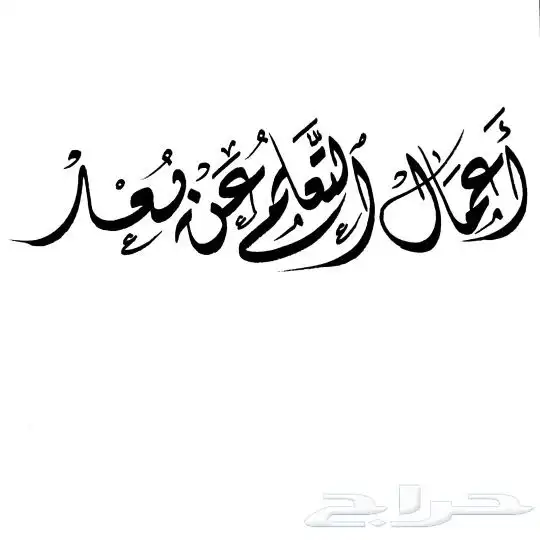 أَعمَال التَّعلم عَنْ بُعْد
حراج